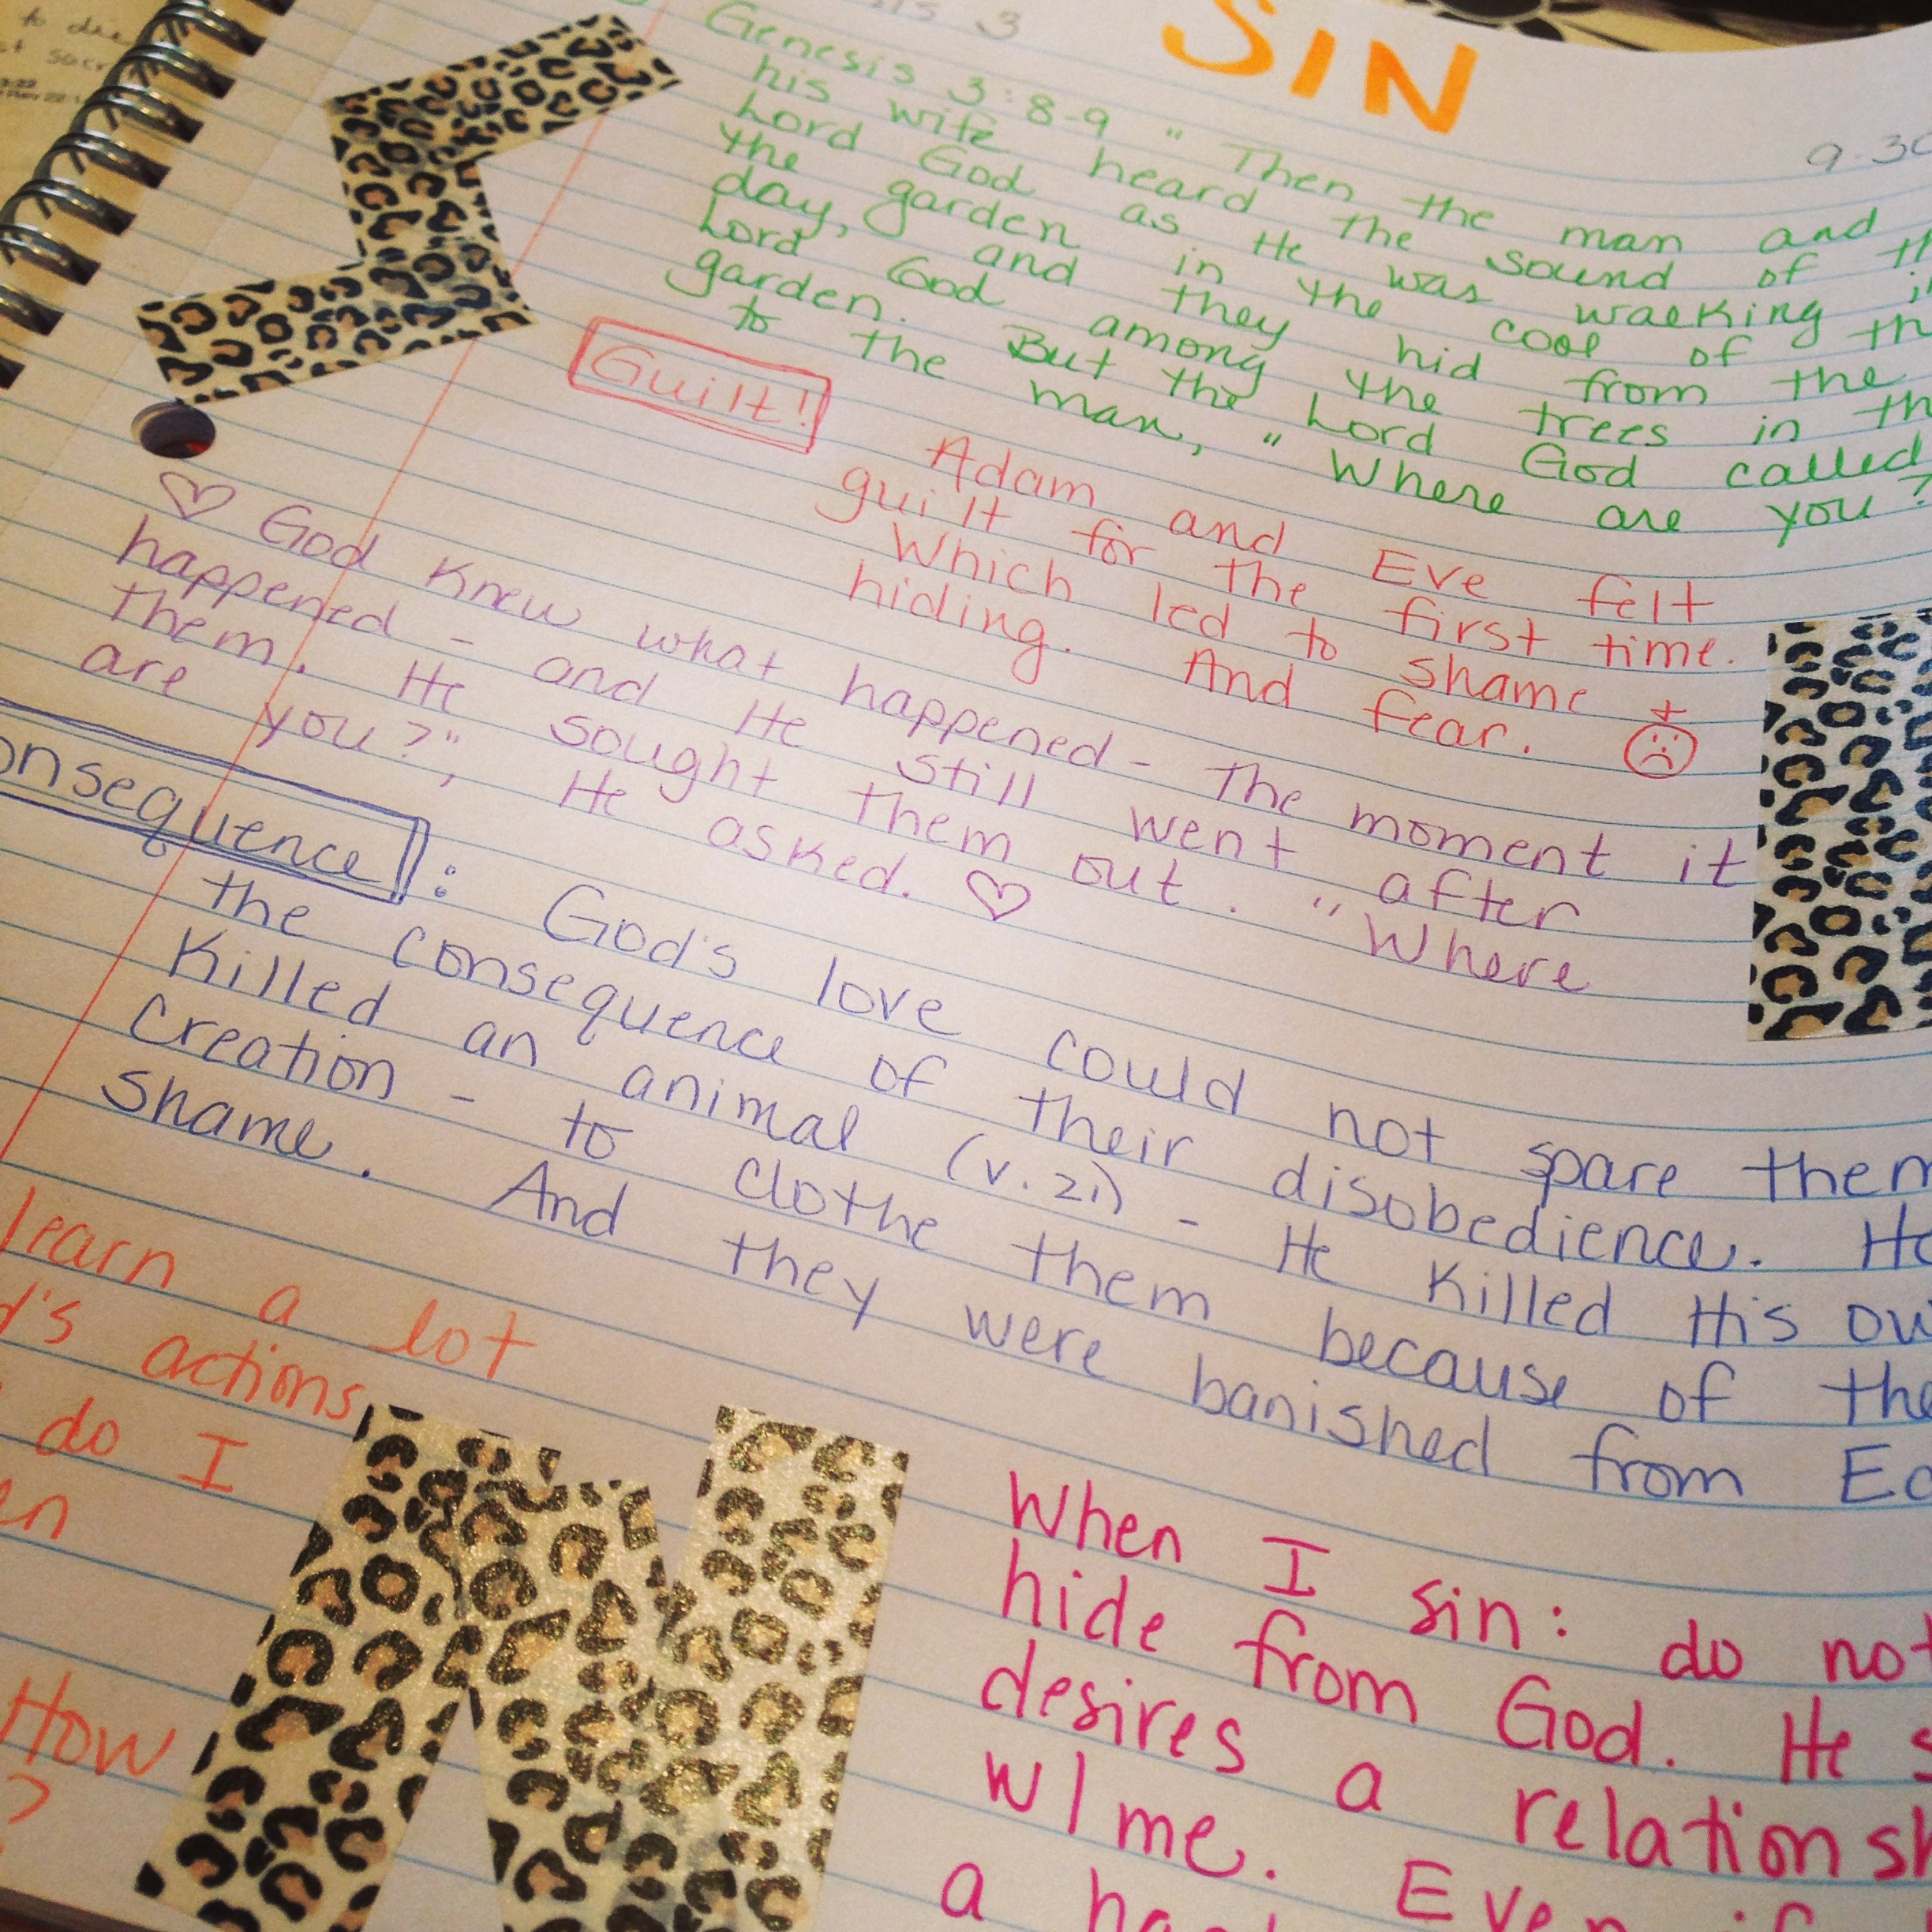 to die
SIN
Genesis 3:8-9 " Then the man and
his wife heard the sound of
Lord God as He was walking
the garden in the cool of
day, and they hid from the
Lord God among the trees in
garden. But the Lord God called
to the man, " Where are you?
Guilt!
Adam and Eve felt
guilt for the first time.
Which led to shame +
hiding. And fear.
♡ God knew what happened - The moment it
happened - and He still went after
them. He sought them out. "Where
are you?", He asked. ♡
: God's love could not spare
the consequence of their disobedience.
Killed an animal (v. 21) - He killed His
creation - to clothe them because of
shame. And they were banished from
learn a lot
actions
do I
How
?
When I sin: do
hide from God. He
desires a
w/ me. Even if
a